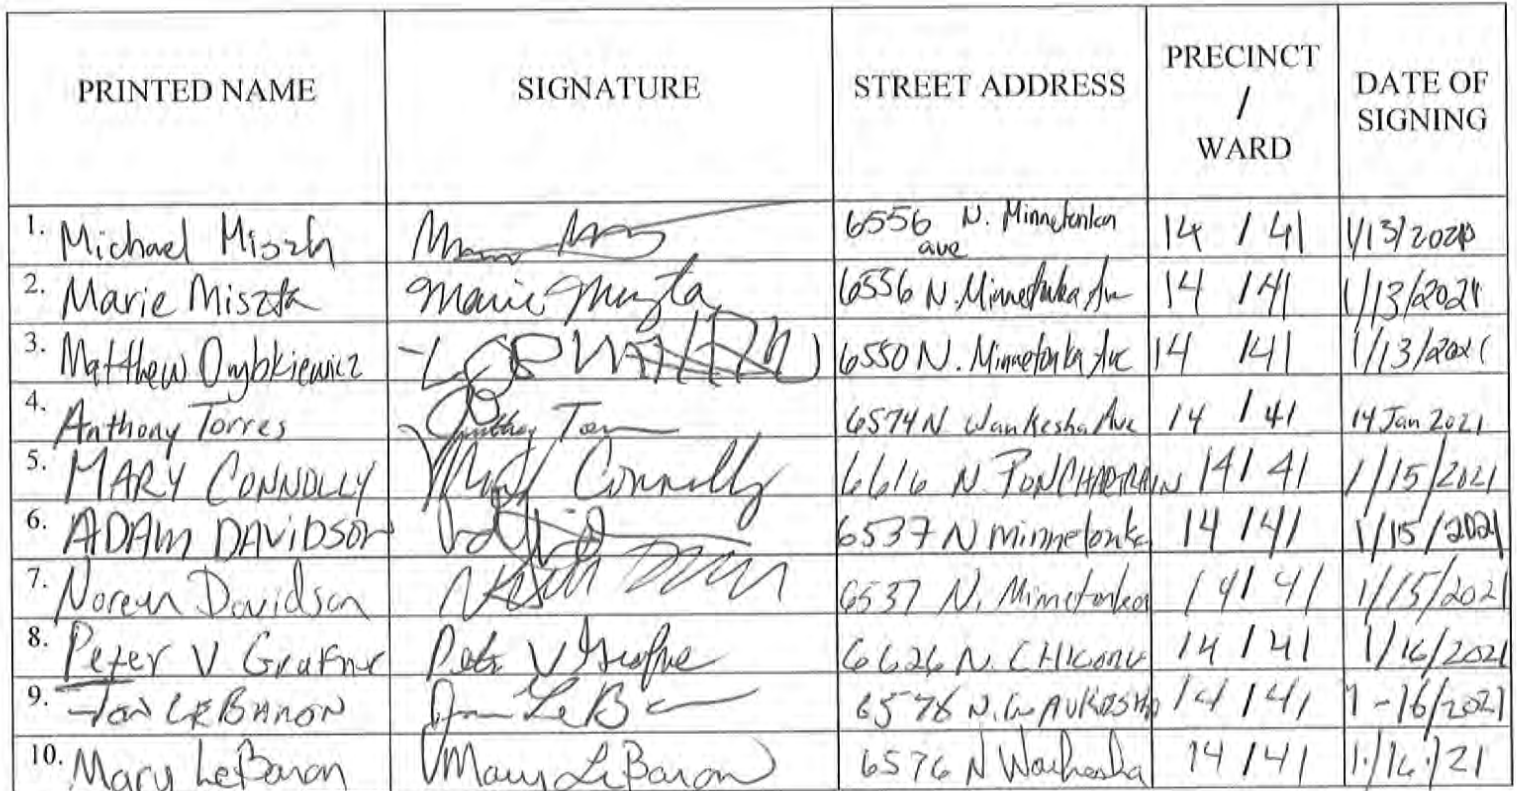 PRINTED NAME SIGNATURE STREET ADDRESS PRECINCT / WARD DATE OF SIGNING
1. Michael Miszta 6556 N. Minnetonka ave 14 / 41 1/13/2021
2. Marie Miszta Marie Miszta 6556 N. Minnetonka Ave 14 / 41 1/13/2021
3. Matthew 6550 N. Minnetonka Ave 14 / 41 1/13/2021
4. Anthony Torres 6574 N Waukesha Ave 14 / 41 14 Jan 2021
5. MARY CONNOLLY Mary Connolly 6616 N. PONCHARTRAIN 14 / 41 1/15/2021
6. ADAM DAVIDSON 6537 N Minnetonka 14 / 41 1/15/2021
7. Noreen Davidson 6537 N. Minnetonka 14 / 41 1/15/2021
8. Peter V. Peter V 6626 N. 14 / 41 1/16/2021
9. LEBARON N. WAUKESHA 14 / 41 1-16/2021
10. Mary LeBaron Mary LeBaron 6576 N Waukesha 14 / 41 1/16/21